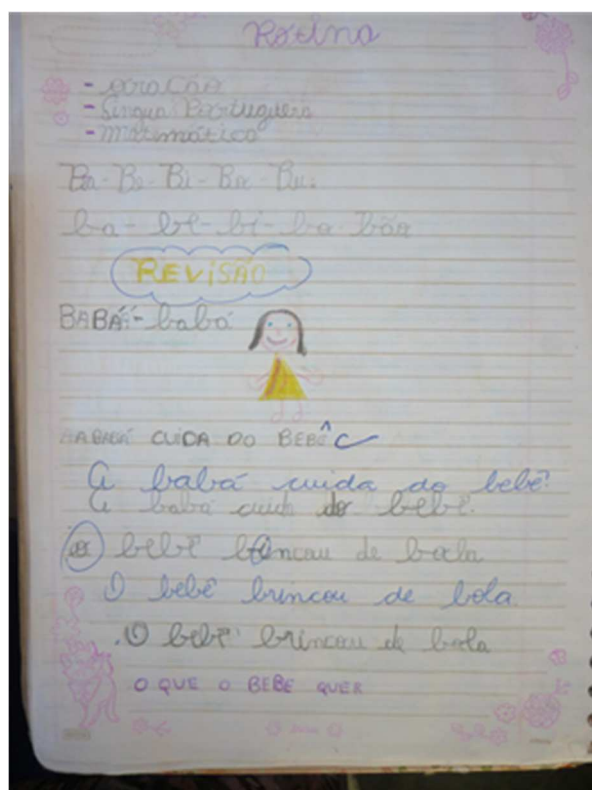 Rotina
- oração
- Língua Portuguesa
- Matemática
Ba - Be - Bi - Bo - Bu.
ba - be - bi - bo
REVISÃO
BABÁ - babá
A BABÁ CUIDA DO BEBÊ
A babá cuida do bebê.
A babá cuida do bebê.
o bebê brincou de bola
O bebê brincou de bola.
O bebê brincou de bola
O QUE O BEBE QUER